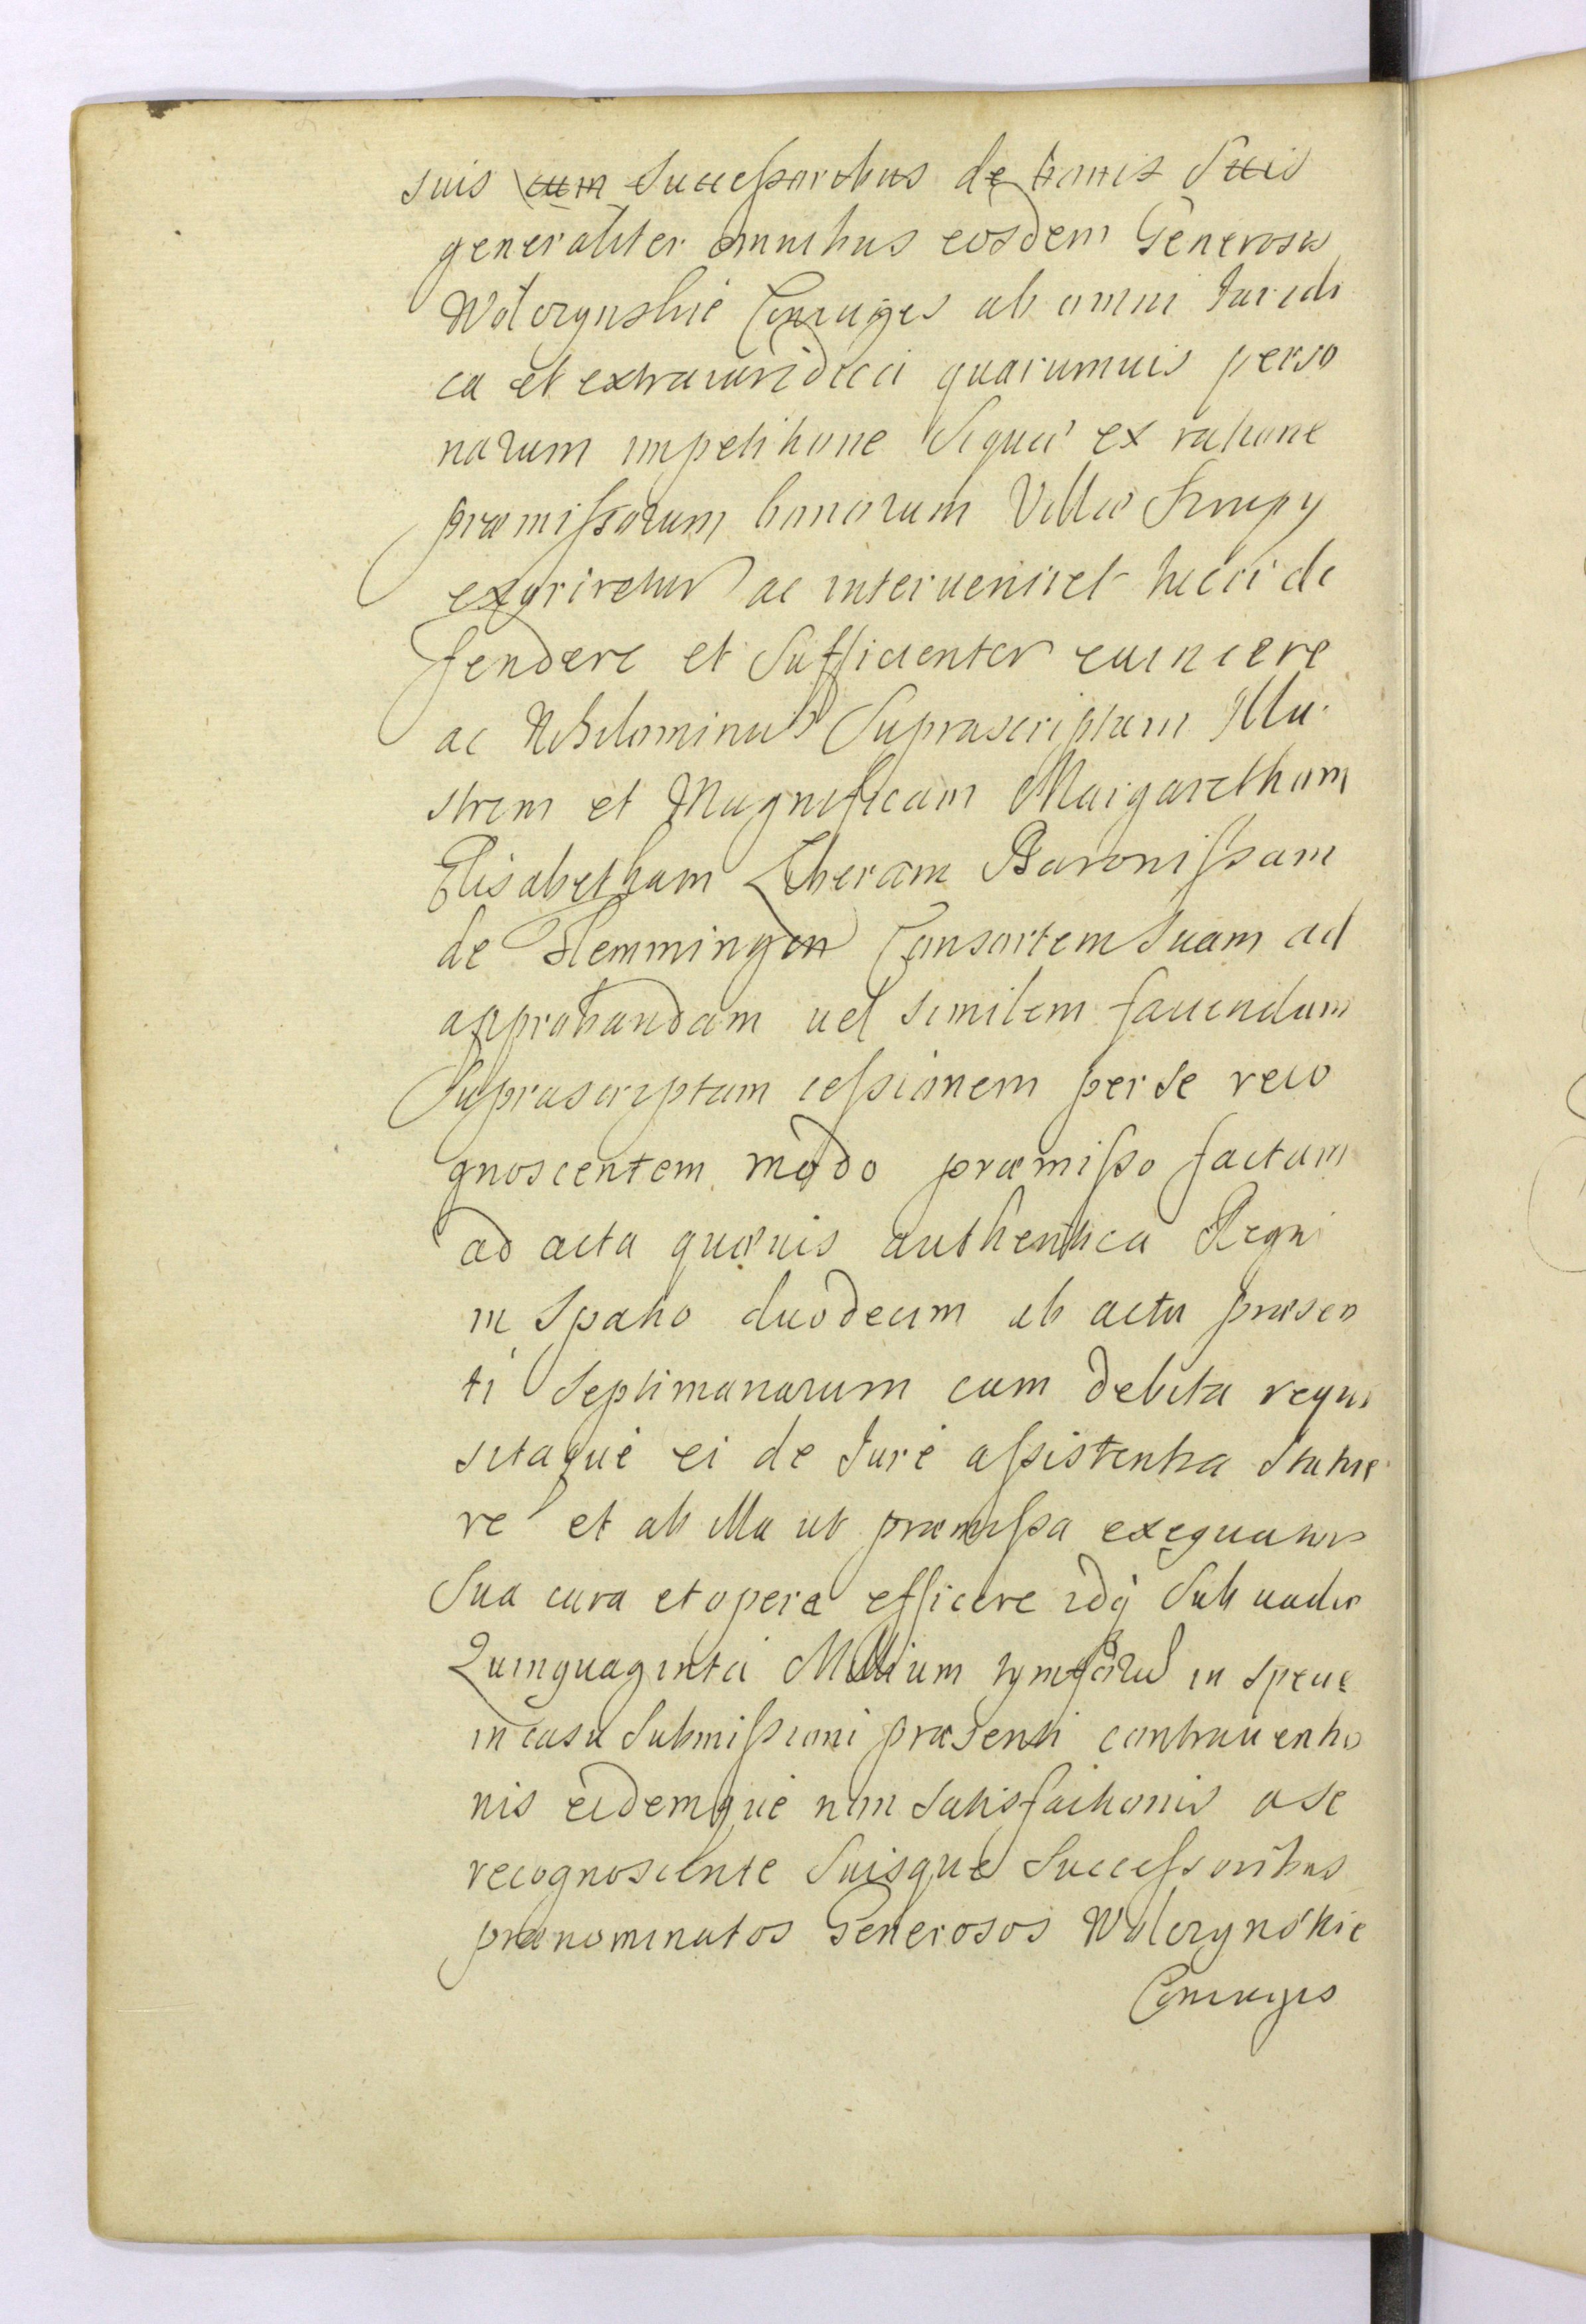 suis cum Successoribus de bonis Suis
generaliter omnibus eosdem Generosos
Wolczynskie Coniuges ab omni Juridi
ca et extraiuridica quarumuis perso
narum impetitione Siquæ ex ratione
præmissorum bonorum Villæ Krupy
exoriretur ac interueniret tueri de
fendere et Sufficienter euincere
ac Nihilominus Suprascriptam Illu
strem et Magnificam Margaretham
Elisabetham Liberam Baronissam
de Flemmingen Consortem Suam ad
approbandam uel similem faciendam
Suprascriptam cessionem per se reco
gnoscentem modo præmisso factam
ad acta quæuis authentica Regni
in Spatio duodecim ab actu præsen
ti Septimanarum cum debita requi
sitaque ei de Jure assistentia Statue
re et ab illa ut præmissa exequatur
Sua cura et opera efficere idq Sub uadio
Quinquaginta Millium in specie
in casu Submissioni præsenti contrauentio
nis eidemque non Satisfactionis a se
recognoscente Suisque Successoribus
prænominatos Generosos Wolczynskie
Coniuges